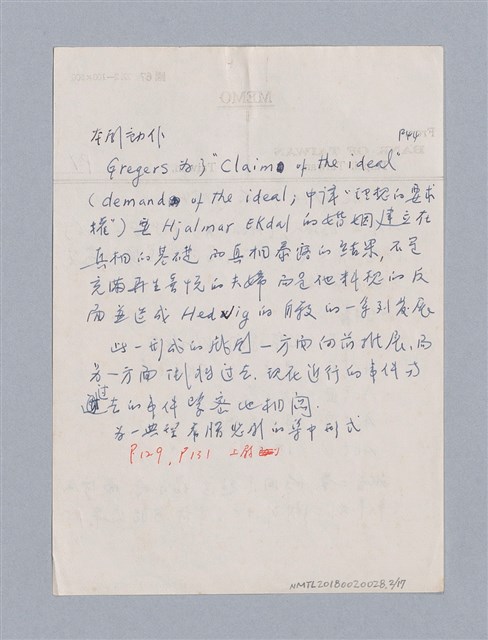 本劇動作 P44
Gregers 為了"Claim of the ideal"
(demand of the ideal; 中譯"理想的要求
權") 要 Hjalmar Ekdal 的婚姻建立在
真相的基礎 而真相暴露的結果, 不是
充滿再生喜悅的夫婦 而是他料想的反
而並造成 Hedwig 的自殺的一系列發展
此一形式的戲劇一方面向前推展, 而
另一方面倒指過去. 現在進行的事件與
過去的事件緊密地相關.
為一典型希臘悲劇的集中形式
P129, P131
MEMO
NMTL20180020028,3/17